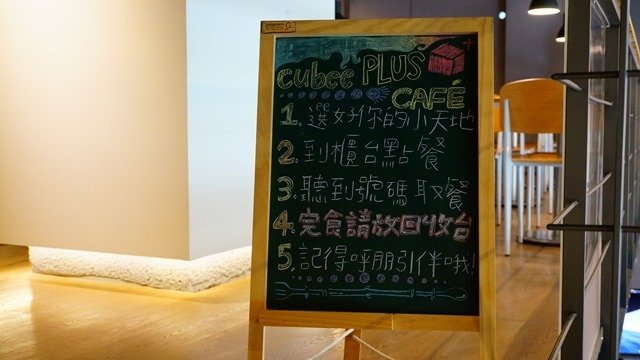 cubee PLUS
CAFÉ
1. 選好你的小天地
2. 到櫃台點餐
3. 聽到號碼取餐
4. 完食請放回收台
5. 記得呼朋引伴哦!